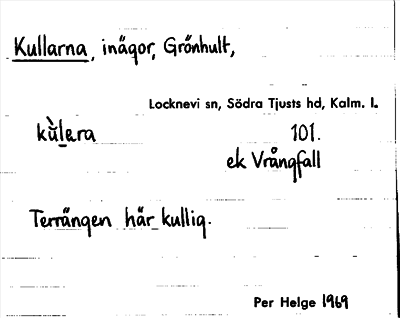 Kullarna, inägor, Grönhult,
Locknevi sn, Södra Tjusts hd, Kalm. l.
kùlera 101.
ek Vrångfall
Terrängen här kullig.
Per Helge 1969